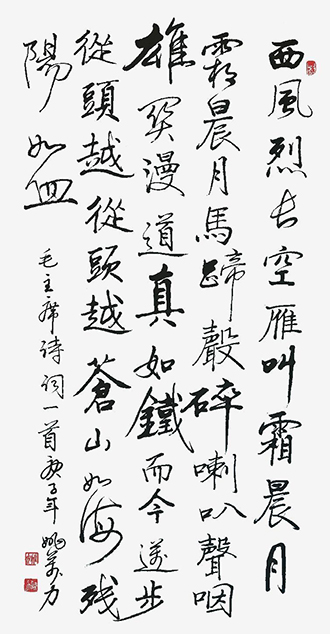 西風烈长空雁叫霜晨月
霜晨月馬蹄聲碎喇叭聲咽
雄関漫道真如鐵而今邁步
從頭越從頭越蒼山如海残
陽如血
毛主席诗词一首庚子年